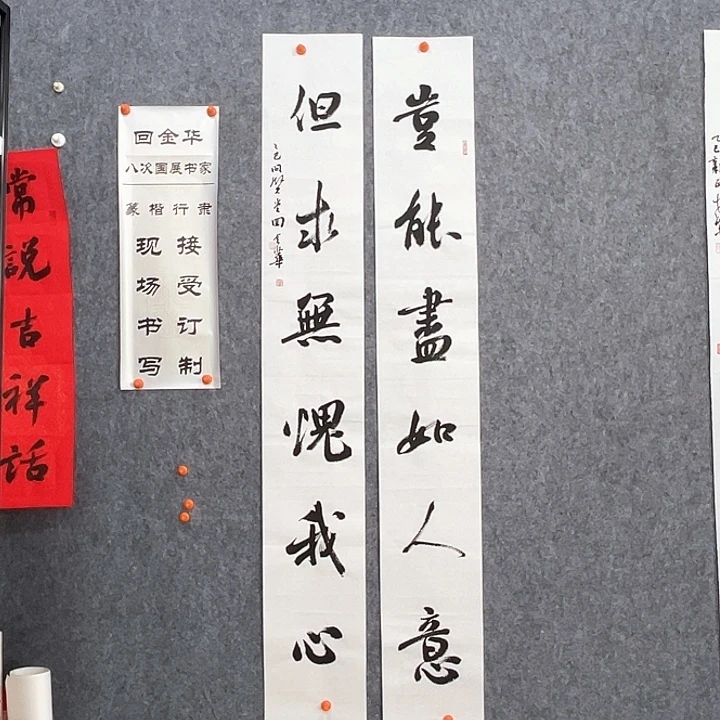 豈能盡如人意
但求無愧我心
回金华
八次国展书家
篆楷行隶
接受订制
现场书写
常說吉祥話